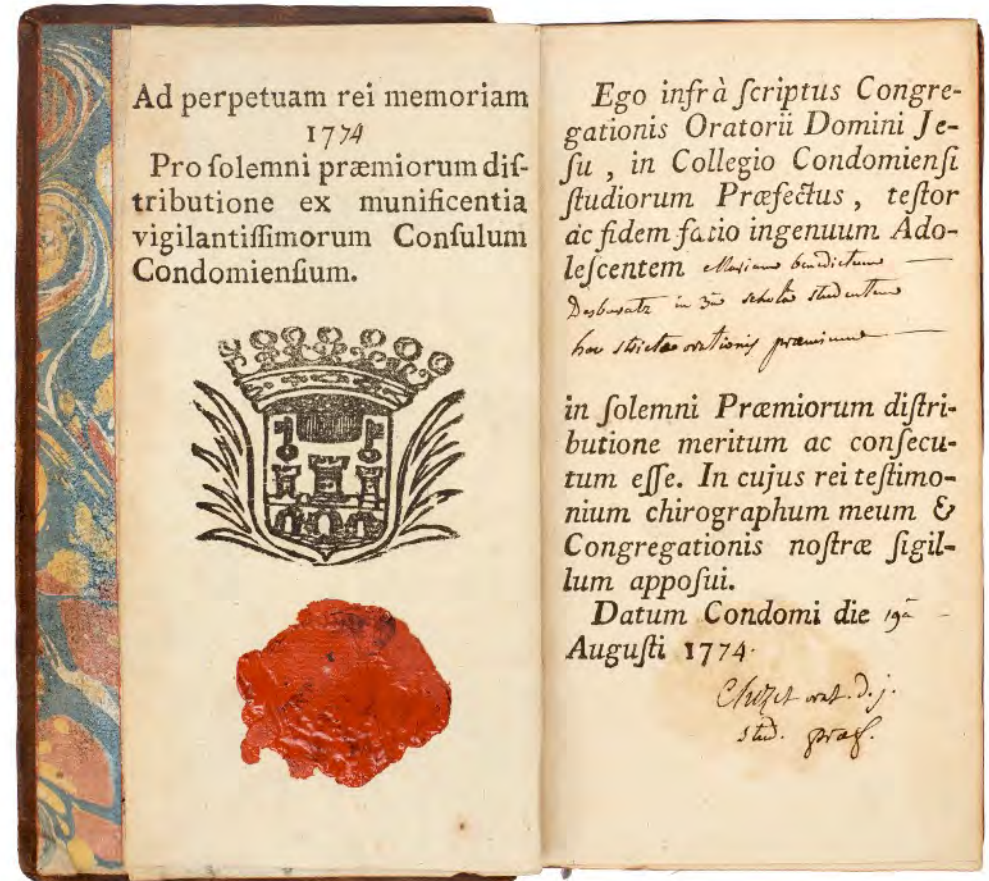 Ad perpetuam rei memoriam
1774
Pro ſolemni præmiorum diſ-
tributione ex munificentia
vigilantiſſimorum Conſulum
Condomienſium.
Ego infrà ſcriptus Congre-
gationis Oratorii Domini Je-
ſu , in Collegio Condomienſi
ſtudiorum Præfectus , teſtor
ac fidem facio ingenuum Ado-
leſcentem benedictum
in 3â scholâ studentem
hoc strictae orationis praemium
in ſolemni Præmiorum diſtri-
butione meritum ac conſecu-
tum eſſe. In cujus rei teſtimo-
nium chirographum meum &
Congregationis noſtræ ſigil-
lum appoſui.
Datum Condomi die 19â
Auguſti 1774.
orat. D. j.
stud. præf.